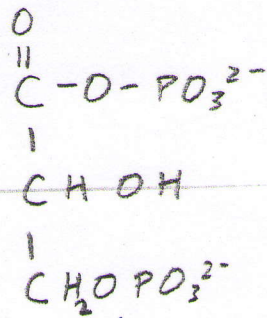 O
||
C-O-PO₃²⁻
|
CHOH
|
CH₂OPO₃²⁻